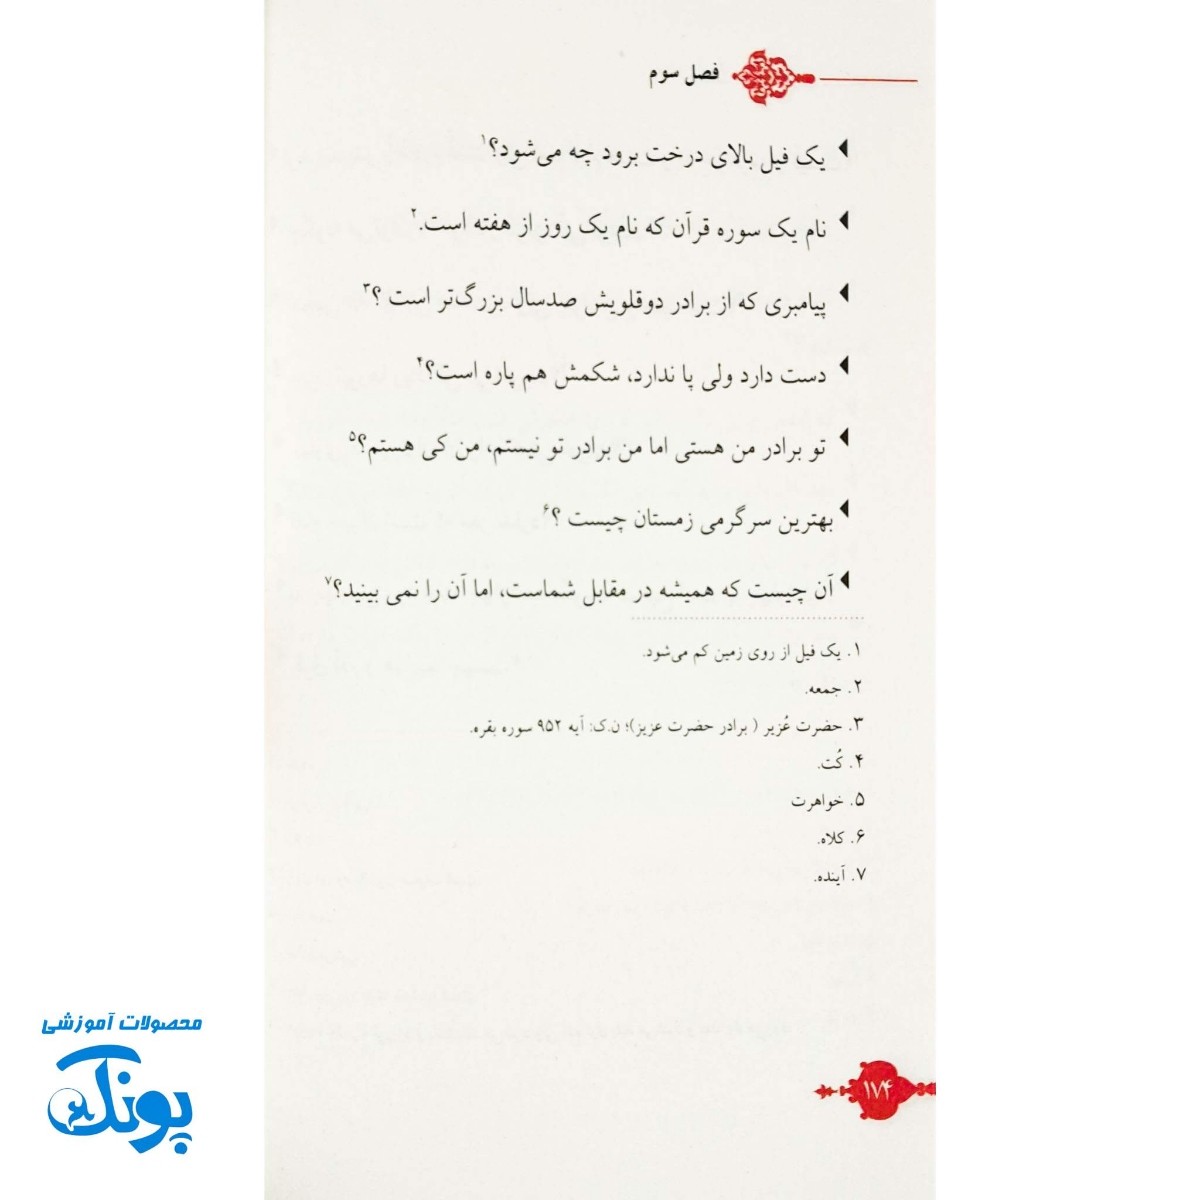 فصل سوم
یک فیل بالای درخت برود چه می‌شود؟۱
نام یک سوره قرآن که نام یک روز از هفته است.۲
پیامبری که از برادر دوقلویش صدسال بزرگ‌تر است ؟۳
دست دارد ولی پا ندارد، شکمش هم پاره است؟۴
تو برادر من هستی اما من برادر تو نیستم، من کی هستم؟۵
بهترین سرگرمی زمستان چیست ؟۶
آن چیست که همیشه در مقابل شماست، اما آن را نمی بینید؟۷
۱. یک فیل از روی زمین کم می‌شود.
۲. جمعه.
۳. حضرت عُزیر ( برادر حضرت عزیز)؛ ن.ک: آیه ۹۵۲ سوره بقره.
۴. کُت.
۵. خواهرت
۶. کلاه.
۷. آینده.
۱۷۴
محصولات آموزشی
پونک